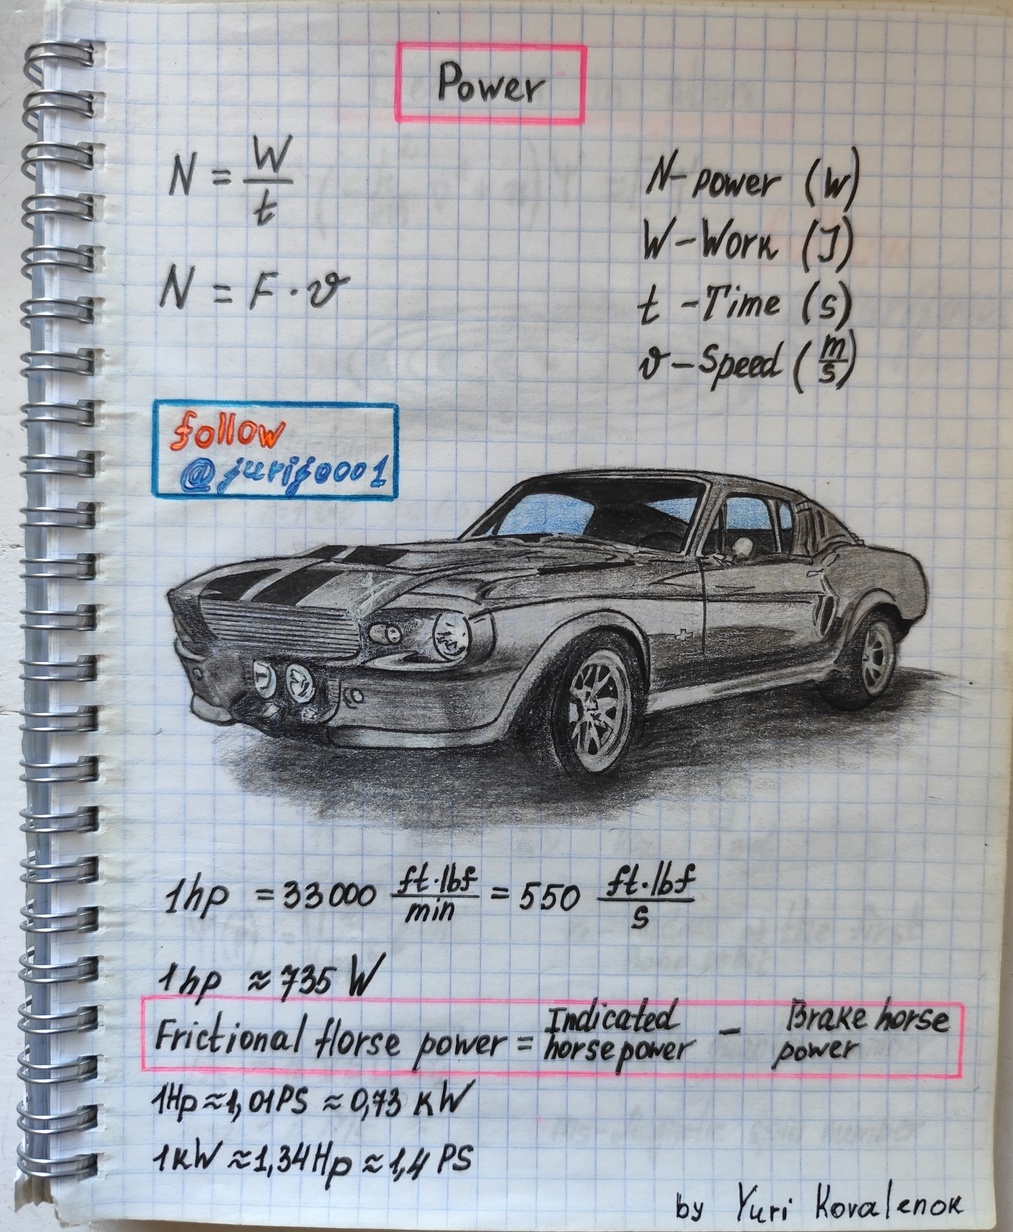 Power
N = W/t
N = F·ϑ
N- power (W)
W – Work (J)
t – Time (s)
ϑ – Speed (m/s)
follow
@jurij0001
1hp = 33000 ft·lbf/min = 550 ft·lbf/s
1hp ≈ 735 W
Frictional Horse power = Indicated horsepower – Brake horse power
1Hp ≈ 1,01PS ≈ 0,73 KW
1KW ≈ 1,34Hp ≈ 1,4 PS
by Yuri Kovalenok